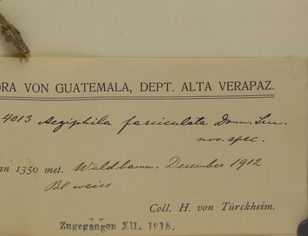 ORA VON GUATEMALA, DEPT. ALTA VERAPAZ.
4013 Aegiphila fasciculata Donn. Sm.
nov. spec.
an 1350 met. Waldbaum. December 1912
Bl weiss
Coll. H. von Türckheim.
Zugegangen XII. 1918.